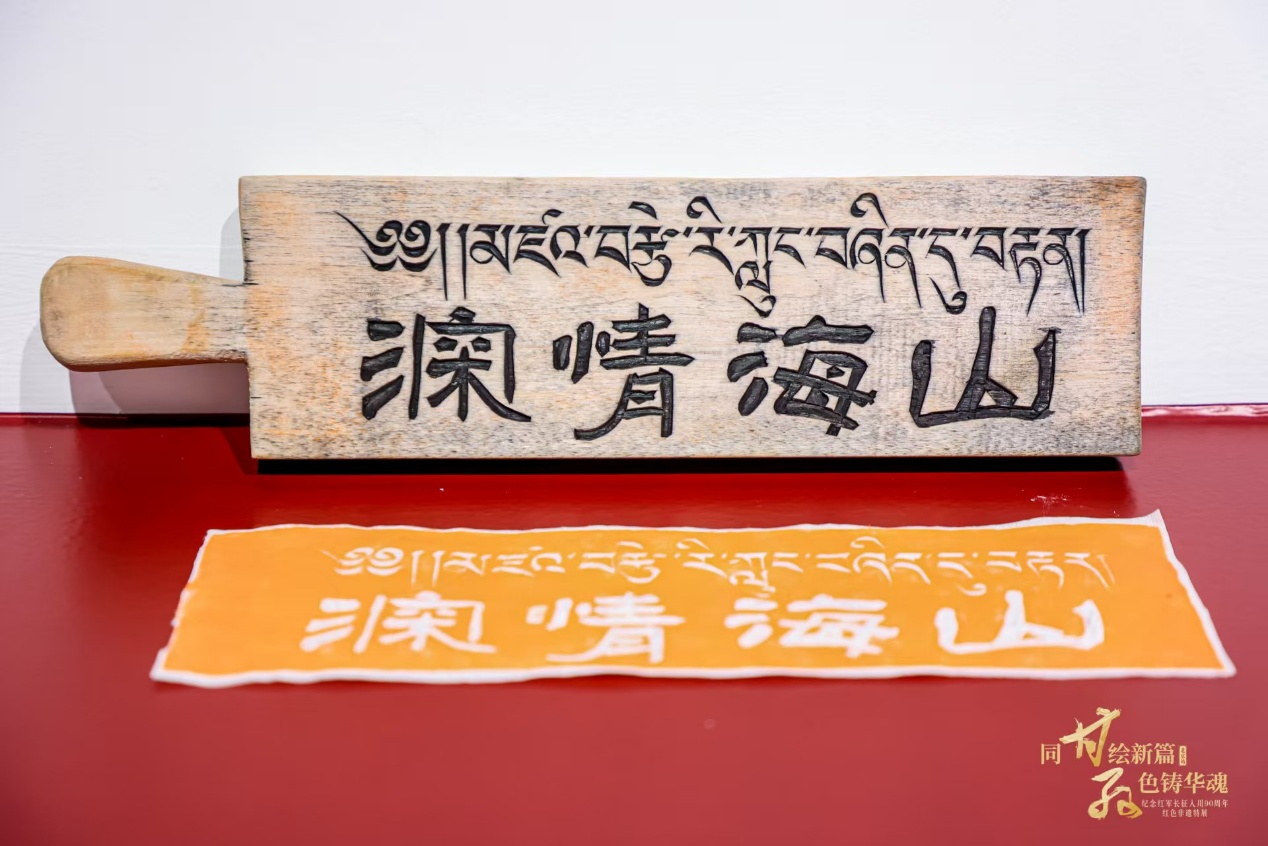 ༄༅།།མཛའ་བརྩེ་རི་ཀླུང་བཞིན་དུ་བརྟན།
山海情澜
༄༅།།མཛའ་བརྩེ་རི་ཀླུང་བཞིན་དུ་བརྟན།
山海情澜
同甘绘新篇
孜色铸华魂
纪念红军长征入川90周年
红色非遗特展